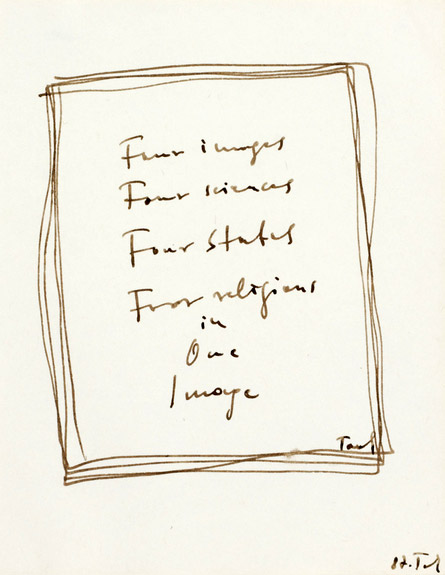 Four images
Four sciences
Four States
Four religions
in
One
Image